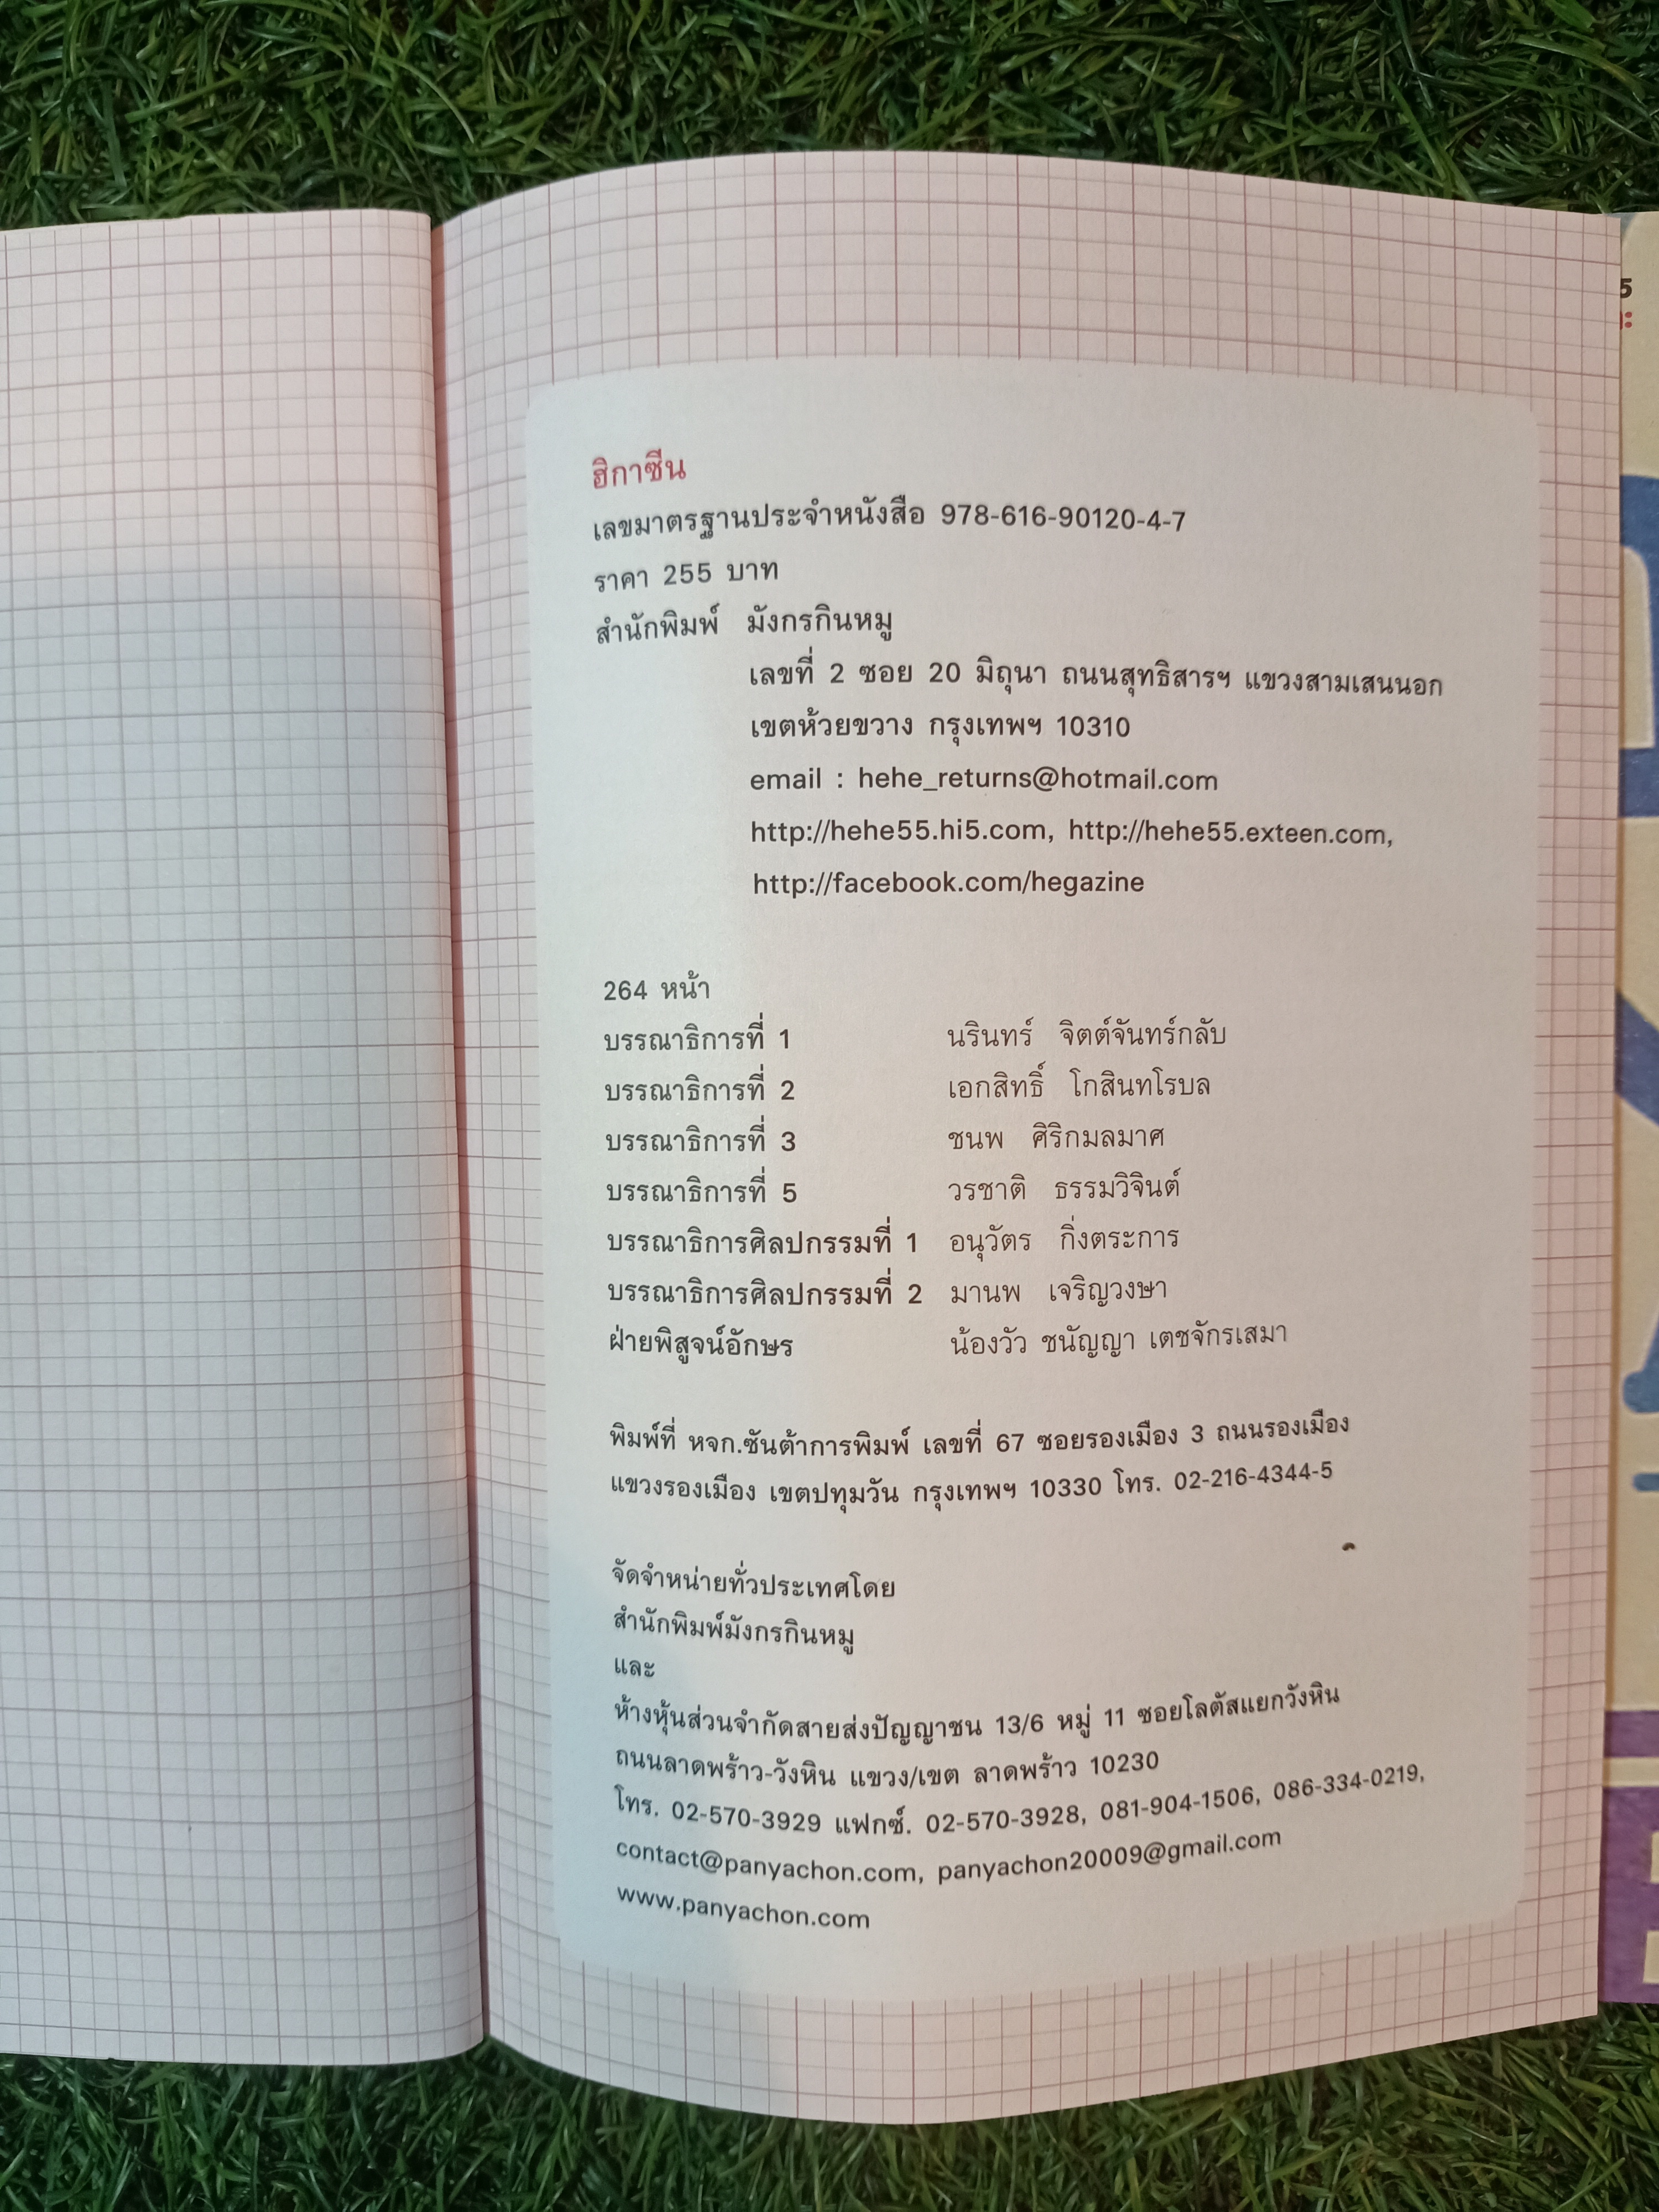 ฮิกาซีน
เลขมาตรฐานประจำหนังสือ 978-616-90120-4-7
ราคา 255 บาท
สำนักพิมพ์ มังกรกินหมู
เลขที่ 2 ซอย 20 มิถุนา ถนนสุทธิสารฯ แขวงสามเสนนอก
เขตห้วยขวาง กรุงเทพฯ 10310
email : hehe_returns@hotmail.com
http://hehe55.hi5.com, http://hehe55.exteen.com,
http://facebook.com/hegazine
264 หน้า
บรรณาธิการที่ 1 นรินทร์ จิตต์จันทร์กลับ
บรรณาธิการที่ 2 เอกสิทธิ์ โกสินทโรบล
บรรณาธิการที่ 3 ชนพ ศิริกมลมาศ
บรรณาธิการที่ 5 วรชาติ ธรรมวิจินต์
บรรณาธิการศิลปกรรมที่ 1 อนุวัตร กิ่งตระการ
บรรณาธิการศิลปกรรมที่ 2 มานพ เจริญวงษา
ฝ่ายพิสูจน์อักษร น้องวัว ชนัญญา เตชจักรเสมา
พิมพ์ที่ หจก.ซันต้าการพิมพ์ เลขที่ 67 ซอยรองเมือง 3 ถนนรองเมือง
แขวงรองเมือง เขตปทุมวัน กรุงเทพฯ 10330 โทร. 02-216-4344-5
จัดจำหน่ายทั่วประเทศโดย
สำนักพิมพ์มังกรกินหมู
และ
ห้างหุ้นส่วนจำกัดสายส่งปัญญาชน 13/6 หมู่ 11 ซอยโลตัสแยกวังหิน
ถนนลาดพร้าว-วังหิน แขวง/เขต ลาดพร้าว 10230
โทร. 02-570-3929 แฟกซ์. 02-570-3928, 081-904-1506, 086-334-0219,
contact@panyachon.com, panyachon20009@gmail.com
www.panyachon.com